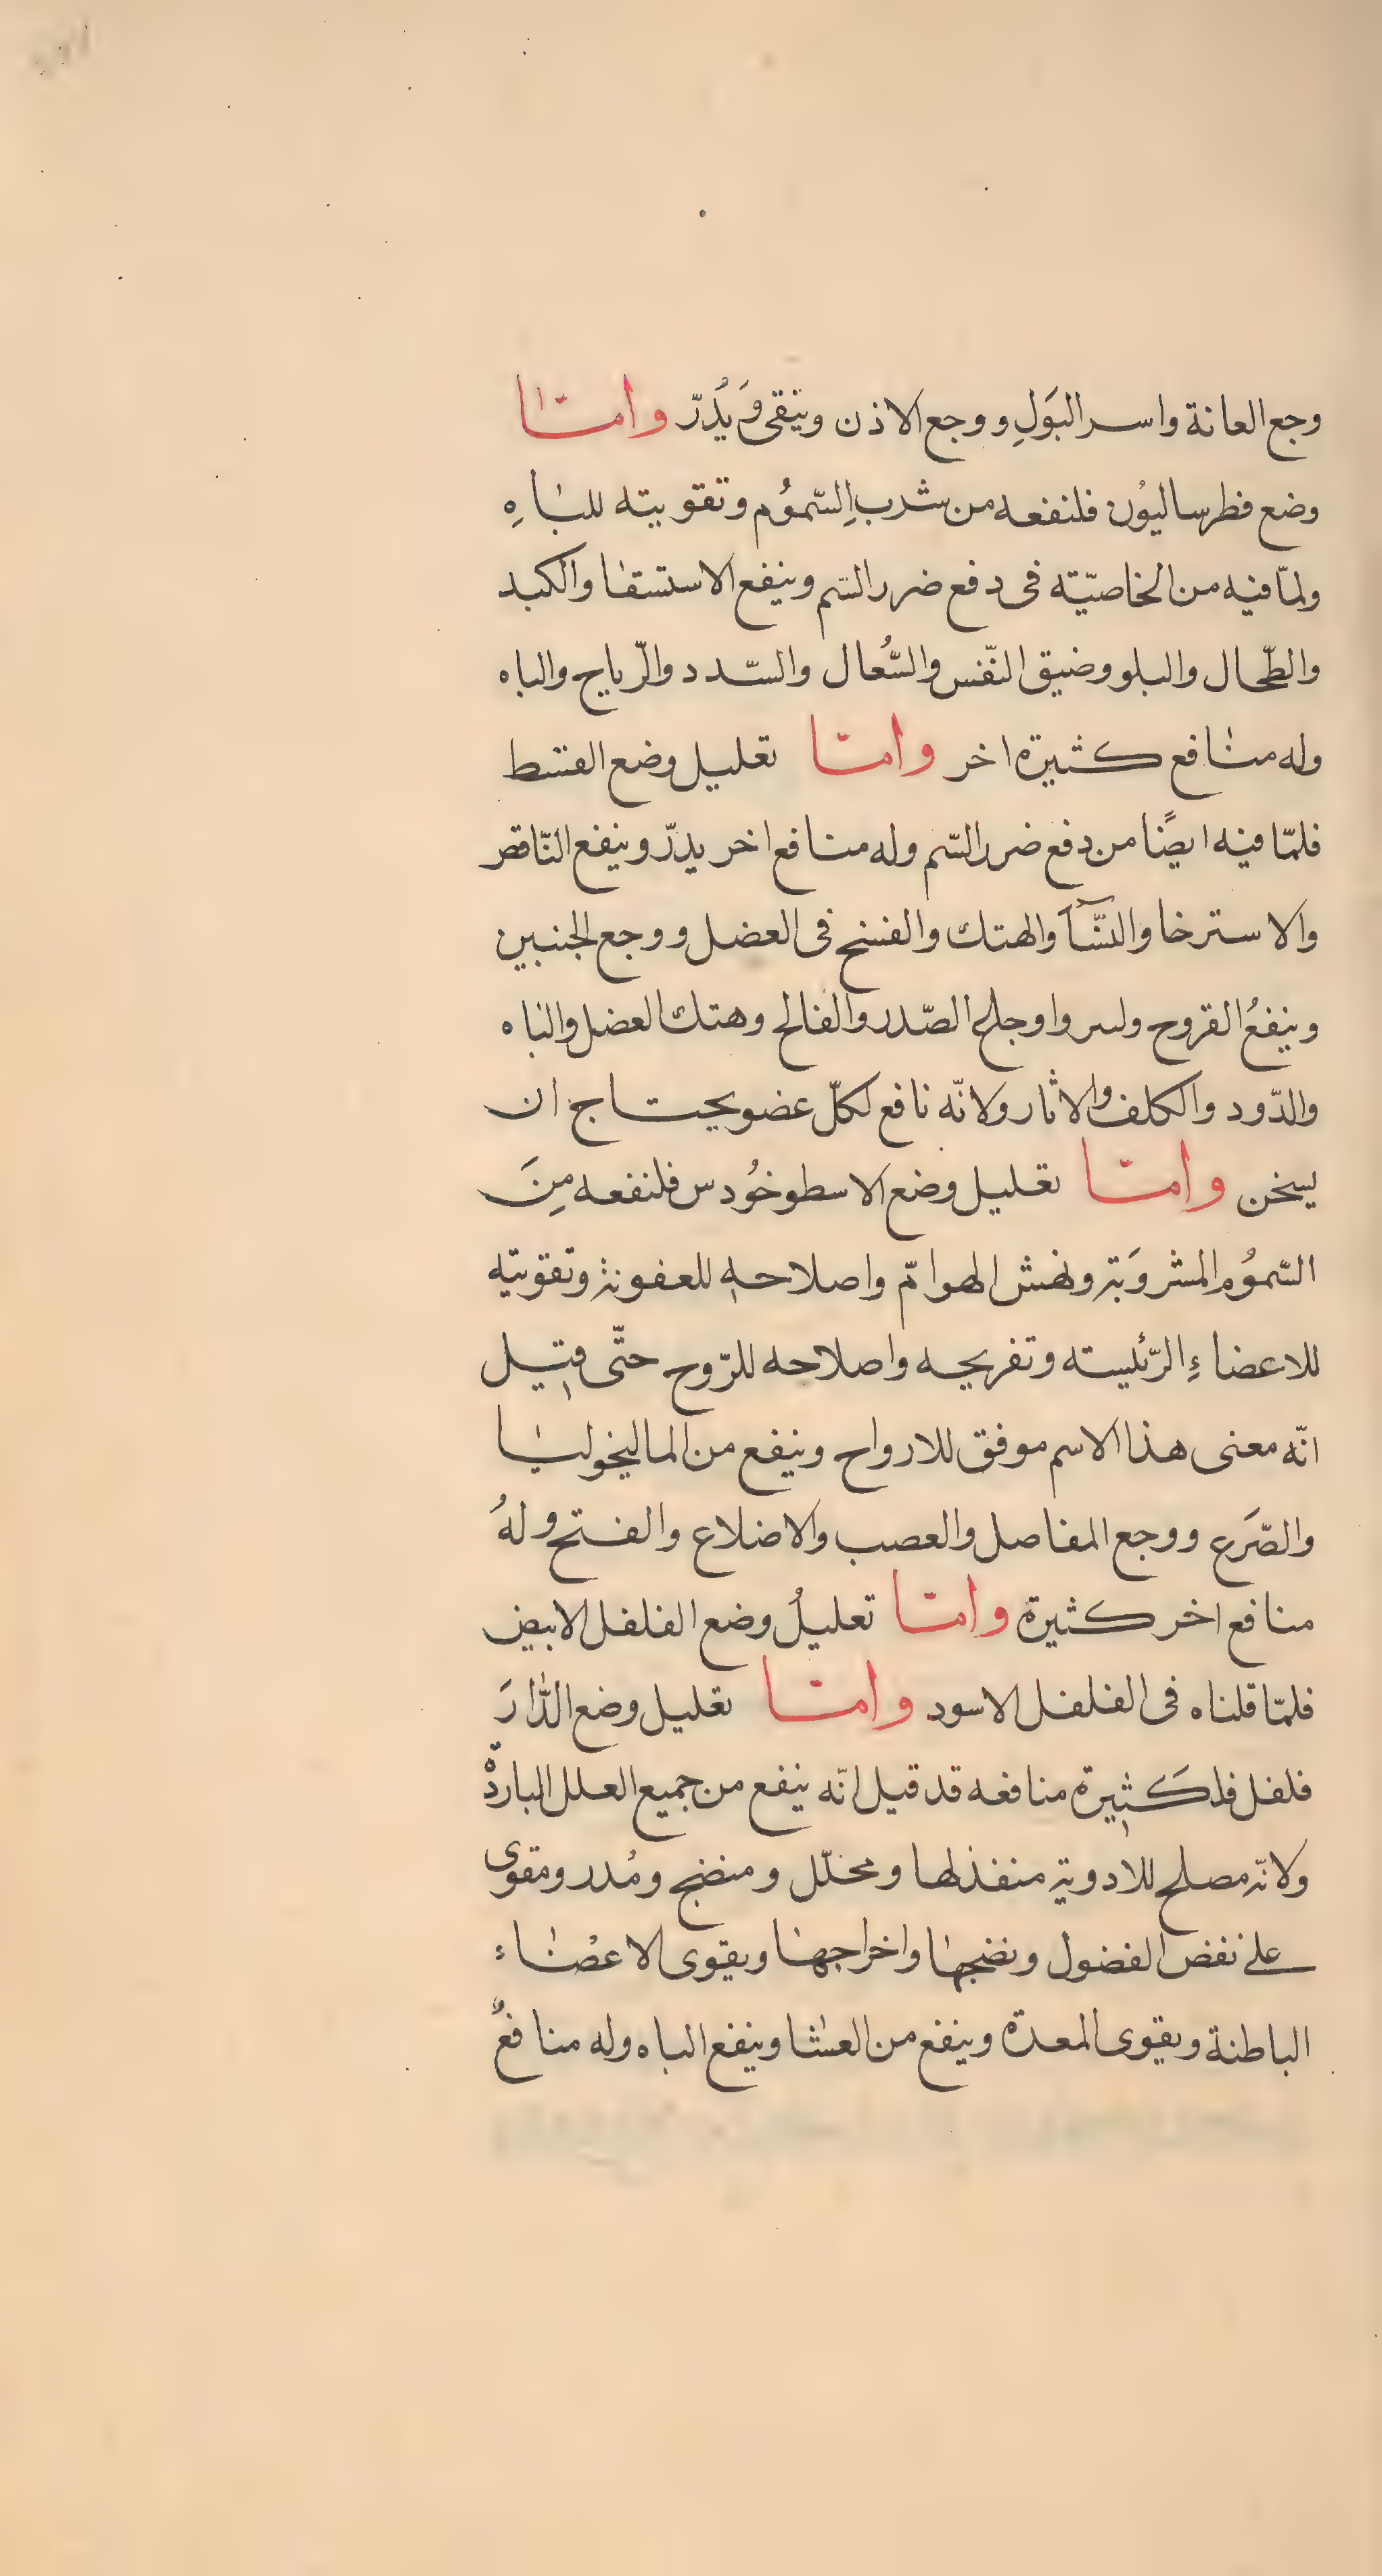 وجع العانة واسر البَولِ ووجع الاذن وينقى وَيُدرّ وامّا
وضع فطرساليُون فلنفعه من شرب السّمُوم وتقويته للباهِ
ولمّا فيه من الخاصيّته فى دفع ضرر السّم وينفع الاستسقا والكبد
والطّحال والبلو وضيق النّفس والسُّعال والسّدد والرّياح والباه
وله منافع كثيرة اخر وامّا تعليل وضع القسط
فلمّا فيه ايضًا من دفع ضرر السّم وله منافع اخر يدرّ وينفع النّاقض
والاسترخا والنسّآ والهتك والفسخ فى العضل ووجع الجنبين
وينفعُ القروح وأوجاع الصّدر والفالج وهتك العضل والباه
والدّود والكلف والاثار ولانّه نافع لكلّ عضو يحتاج ان
يسخن وامّا تعليل وضع الاسطوخُودس فلنفعه مِنَ
السّمُوم المشروَبة ونهش الهوامّ واصلاحه للعفونة وتقويته
للاعضاءِ الرّئيسته وتفريحه واصلاحه للرّوح حتّى قيل
انّه معنى هذا الاسم موفق للارواح وينفع من الماليخوليا
والصّرَع ووجع المفاصل والعصب والاضلاع والفتح ولهُ
منافع اخر كثيرة وامّا تعليلُ وضع الفلفل الابيض
فلمّا قلناه فى الفلفل الاسود وامّا تعليل وضع الدّارَ
فلفل فلكَثيرة منافعه قد قيل انّه ينفع من جميع العلل الباردّة
ولانّه مصلح للادوية منفذ لها ومحلّل ومنضج ومُدر ومقوى
على نفض الفضول ونضجها واخراجها ويقوى الاعضاء
الباطنة ويقوى المعدة وينفع من العشا وينفع الباه وله منافعُ